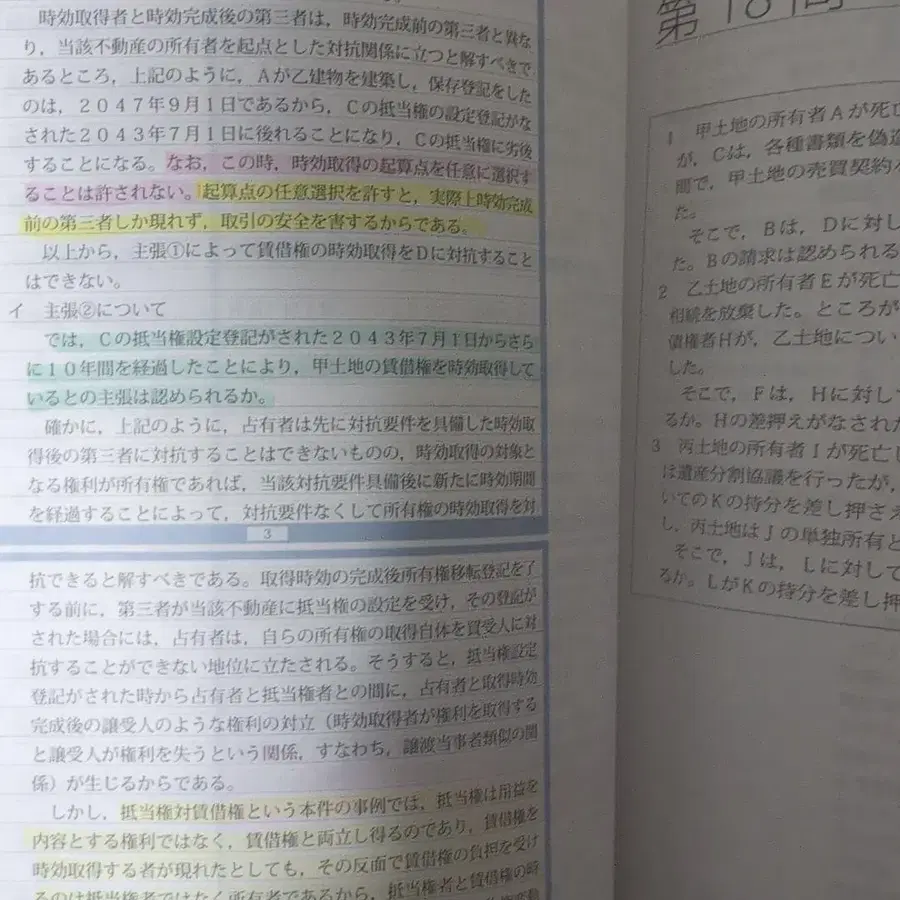 時効取得者と時効完成後の第三者は，時効完成前の第三者と異な
り，当該不動産の所有者を起点とした対抗関係に立つと解すべきで
あるところ，上記のように，Ａが乙建物を建築し，保存登記をした
のは，２０４７年９月１日であるから，Ｃの抵当権の設定登記がな
された２０４３年７月１日に後れることになり，Ｃの抵当権に劣後
することになる。なお，この時，時効取得の起算点を任意に選択す
ることは許されない。起算点の任意選択を許すと，実際上時効完成
前の第三者しか現れず，取引の安全を害するからである。
以上から，主張①によって賃借権の時効取得をＤに対抗すること
はできない。
イ　主張②について
では，Ｃの抵当権設定登記がされた２０４３年７月１日からさら
に１０年間を経過したことにより，甲土地の賃借権を時効取得して
いるとの主張は認められるか。
確かに，上記のように，占有者は先に対抗要件を具備した時効取
得後の第三者に対抗することはできないものの，時効取得の対象と
なる権利が所有権であれば，当該対抗要件具備後に新たに時効期間
を経過することによって，対抗要件なくして所有権の時効取得を対
3
抗できると解すべきである。取得時効の完成後所有権移転登記を了
する前に，第三者が当該不動産に抵当権の設定を受け，その登記が
された場合には，占有者は，自らの所有権の取得自体を買受人に対
抗することができない地位に立たされる。そうすると，抵当権設定
登記がされた時から占有者と抵当権者との間に，占有者と取得時効
完成後の譲受人のような権利の対立（時効取得者が権利を取得する
と譲受人が権利を失うという関係，すなわち，譲渡当事者類似の関
係）が生じるからである。
しかし，抵当権対賃借権という本件の事例では，抵当権は用益を
内容とする権利ではなく，賃借権と両立し得るのであり，賃借権を
時効取得する者が現れたとしても，その反面で賃借権の負担を受け
るのは抵当権者ではなく所有者であるから，抵当権者と賃借権の時
第18問
1　甲土地の所有者Ａが死亡
が，Ｃは，各種書類を偽造
間で，甲土地の売買契約
た。
そこで，Ｂは，Ｄに対し
た。Ｂの請求は認められる
2　乙土地の所有者Ｅが死亡
相続を放棄した。ところが
債権者Ｈが，乙土地につい
した。
そこで，Ｆは，Ｈに対して
るか。Ｈの差押えがなされた
3　丙土地の所有者Ｉが死亡し
は遺産分割協議を行ったが，
いてのＫの持分を差し押さえ
し，丙土地はＪの単独所有と
そこで，Ｊは，Ｌに対して
るか。ＬがＫの持分を差し押